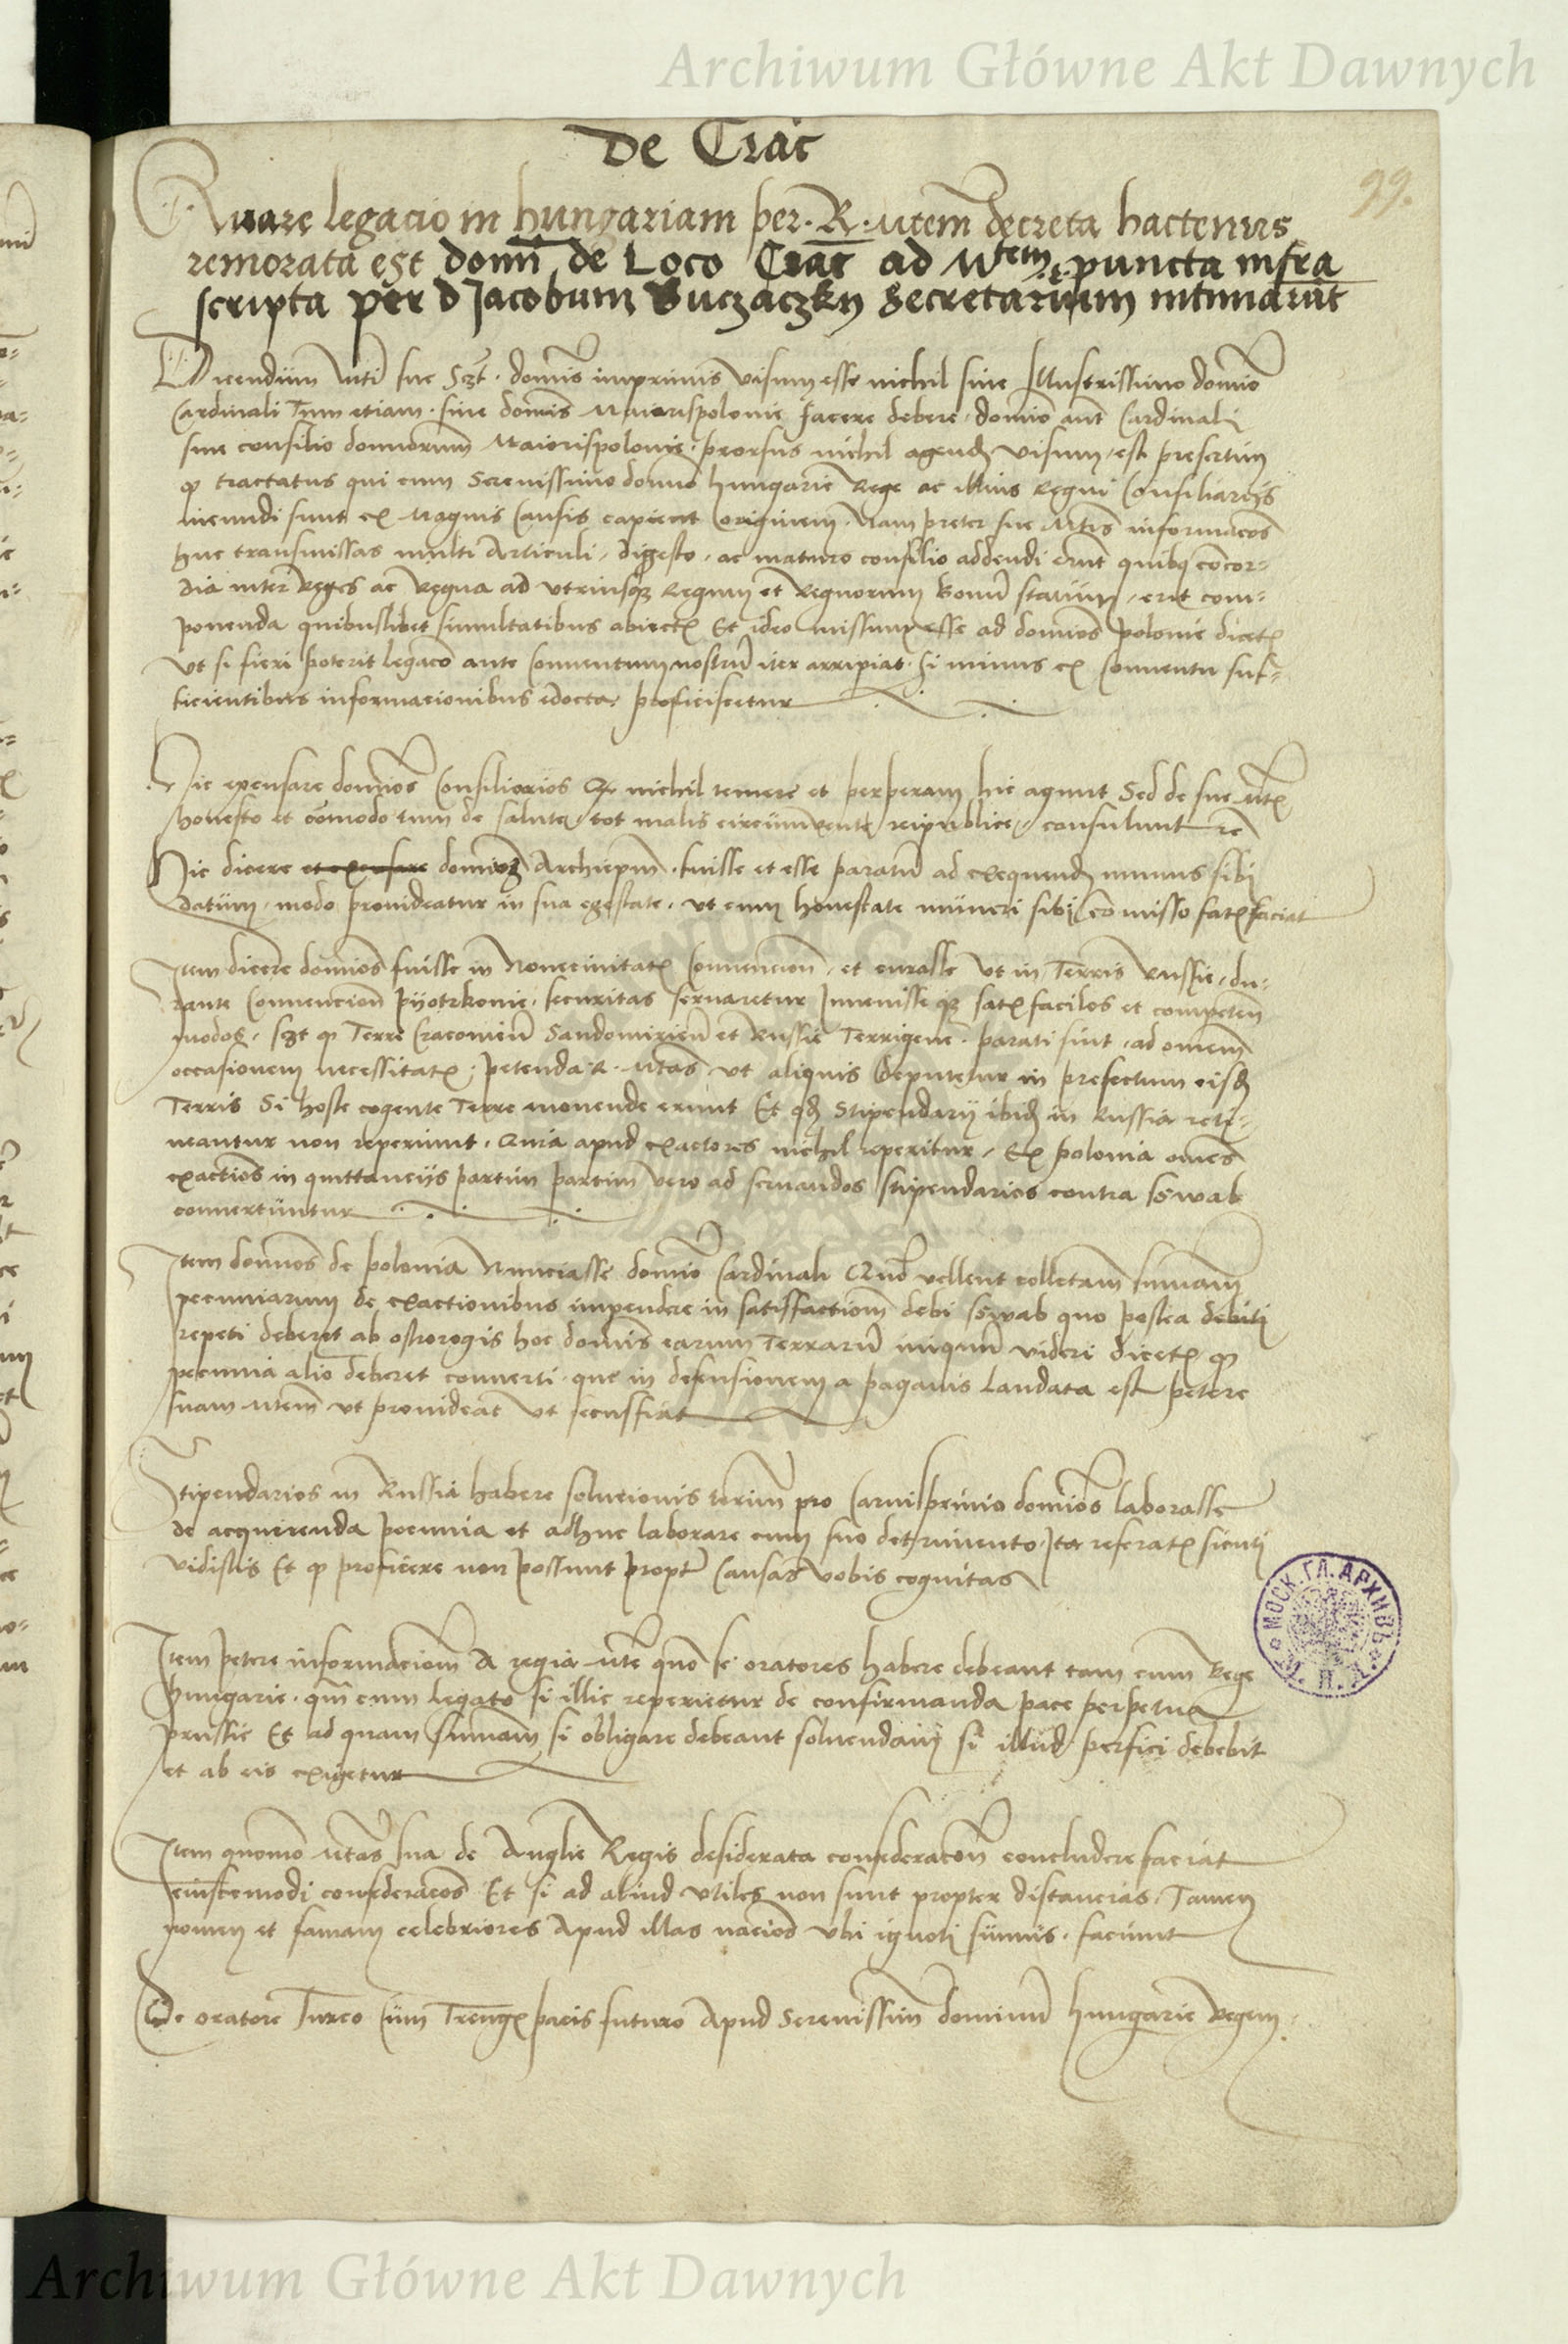 Archiwum Główne Akt Dawnych
De Crac
99.
Quare legacio in hungariam per. R. Mtem decreta hactenus
remorata est domni de Loco Crac ad Mtem puncta infra
scripta per d Jacobum Buczaczky Secretarium intimarunt
Dicendum Mti sue Szt. domis inprimis visum esse nichil sine Illustrissimo domio
Cardinali Tum etiam. sine domis Maiorispolonie facere debere. domio aut Cardinali
sine consilio domnorum Maiorispolonie. prorsus nichil agend visum est presertim
q tractatus qui cum Serenissimo domno hungarie Rege ac illius Regni Consiliariis
ineundi sunt ex Magnis Causis capient originem. Nam preter sue Mtis informacos
huc transmissas multi Articuli, digesto, ac maturo consilio addendi erunt quibus concor-
dia inter Reges ac Regna ad utriusque Regum et Regnorum bonum statum, erit com-
ponenda quibuslibet simultatibus abiectis Et ideo missum esse ad domios polonie dicet
Ut si fieri poterit legaco ante Conventum nostrum iter arripiat. Si minus ex Conventu suf-
ficientibus informacionibus edocta, proficiscetur
Hic excusare domios Consiliarios Q nichil temere et perperam hic agunt Sed de sue Mtis
honesto et comodo tum de salute, tot malis circumvente reipublice, consulunt rc
Hic dicere et excusare domio Archiepm. fuisse et esse paratum ad exequend munus sibi
datum, modo provideatur in sua egestate, ut cum honestate muneri sibi comisso satisfaciat
Item dicere domios fuisse in Novecivitatis Convencione, et curasse ut in Terris Russie, du-
rante Convencione Pyotrkovie, securitas servaretur Invenisse que satis faciles et competen
modos, szt q Terre Cracovien Sandomirien et Russie Terrigene. parati sint, ad omnem
occasionem necessitatis, petenda R. Mtas ut aliquis deputetur in prefectum eisd
Terris Si hoste cogente Terre movende erunt Et qd Stipendarii ibid in Russia reti-
neantur non reperiunt, Quia apud exactores nichil reperitur, Ex polonia omes
exactios in quittanciis partim partim vero ad servandos stipendarios contra Sswab
convertuntur
Item domnos de polonia Nunciasse domio Cardinali Quod vellent collectam summam
pecuniarum de exactionibus impendere in satisfactiom debi Sswab quo postea debiti
repeti deberet ab ostrorogis hoc domis earum Terrarum iniquum videri dicet q
pecunia alio deberet converti. que in defensionem a paganis laudata est petere
suam Mtem ut provideat ut secusfiat
Stipendarios in Russia habere solucionis terim pro Carnisprivio domios laborasse
de acquirenda pecunia et adhuc laborare cum suo detrimento, Ita referatis sicuti
vidistis Et q proficere non possunt propter Causas vobis cognitas
Item petere informaciom A regia Mte quo se oratores habere debeant tam cum Rege
Hungarie. qm cum legato si illic reperietur de confirmanda pace perpetua
prussie Et ad quam summam si obligare debeant solvendam si illud perfici debebit
et ab eis exigetur
Item quomo Mtas sua de Anglie Regis desiderata confederacon concludere faciat
eiuscemodi confederacos Et si ad aliud utiles non sunt propter distancias, Tamen
nomen et famam celebriores Apud illas nacios ubi ignoti sumus. faciunt
De oratore Turco Cum Treug pacis futuro Apud Serenissim dominum hungarie Regem
МОСК. ГЛ. АРХИВЪ
Archiwum Główne Akt Dawnych